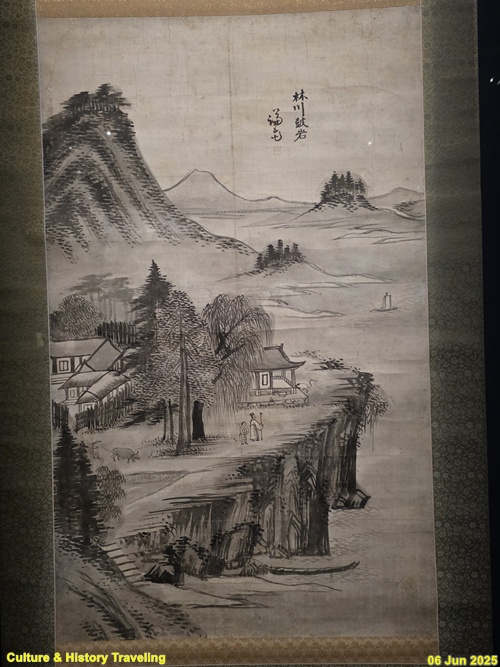 林川鼓岩
謙
Culture & History Traveling
06 Jun 2025